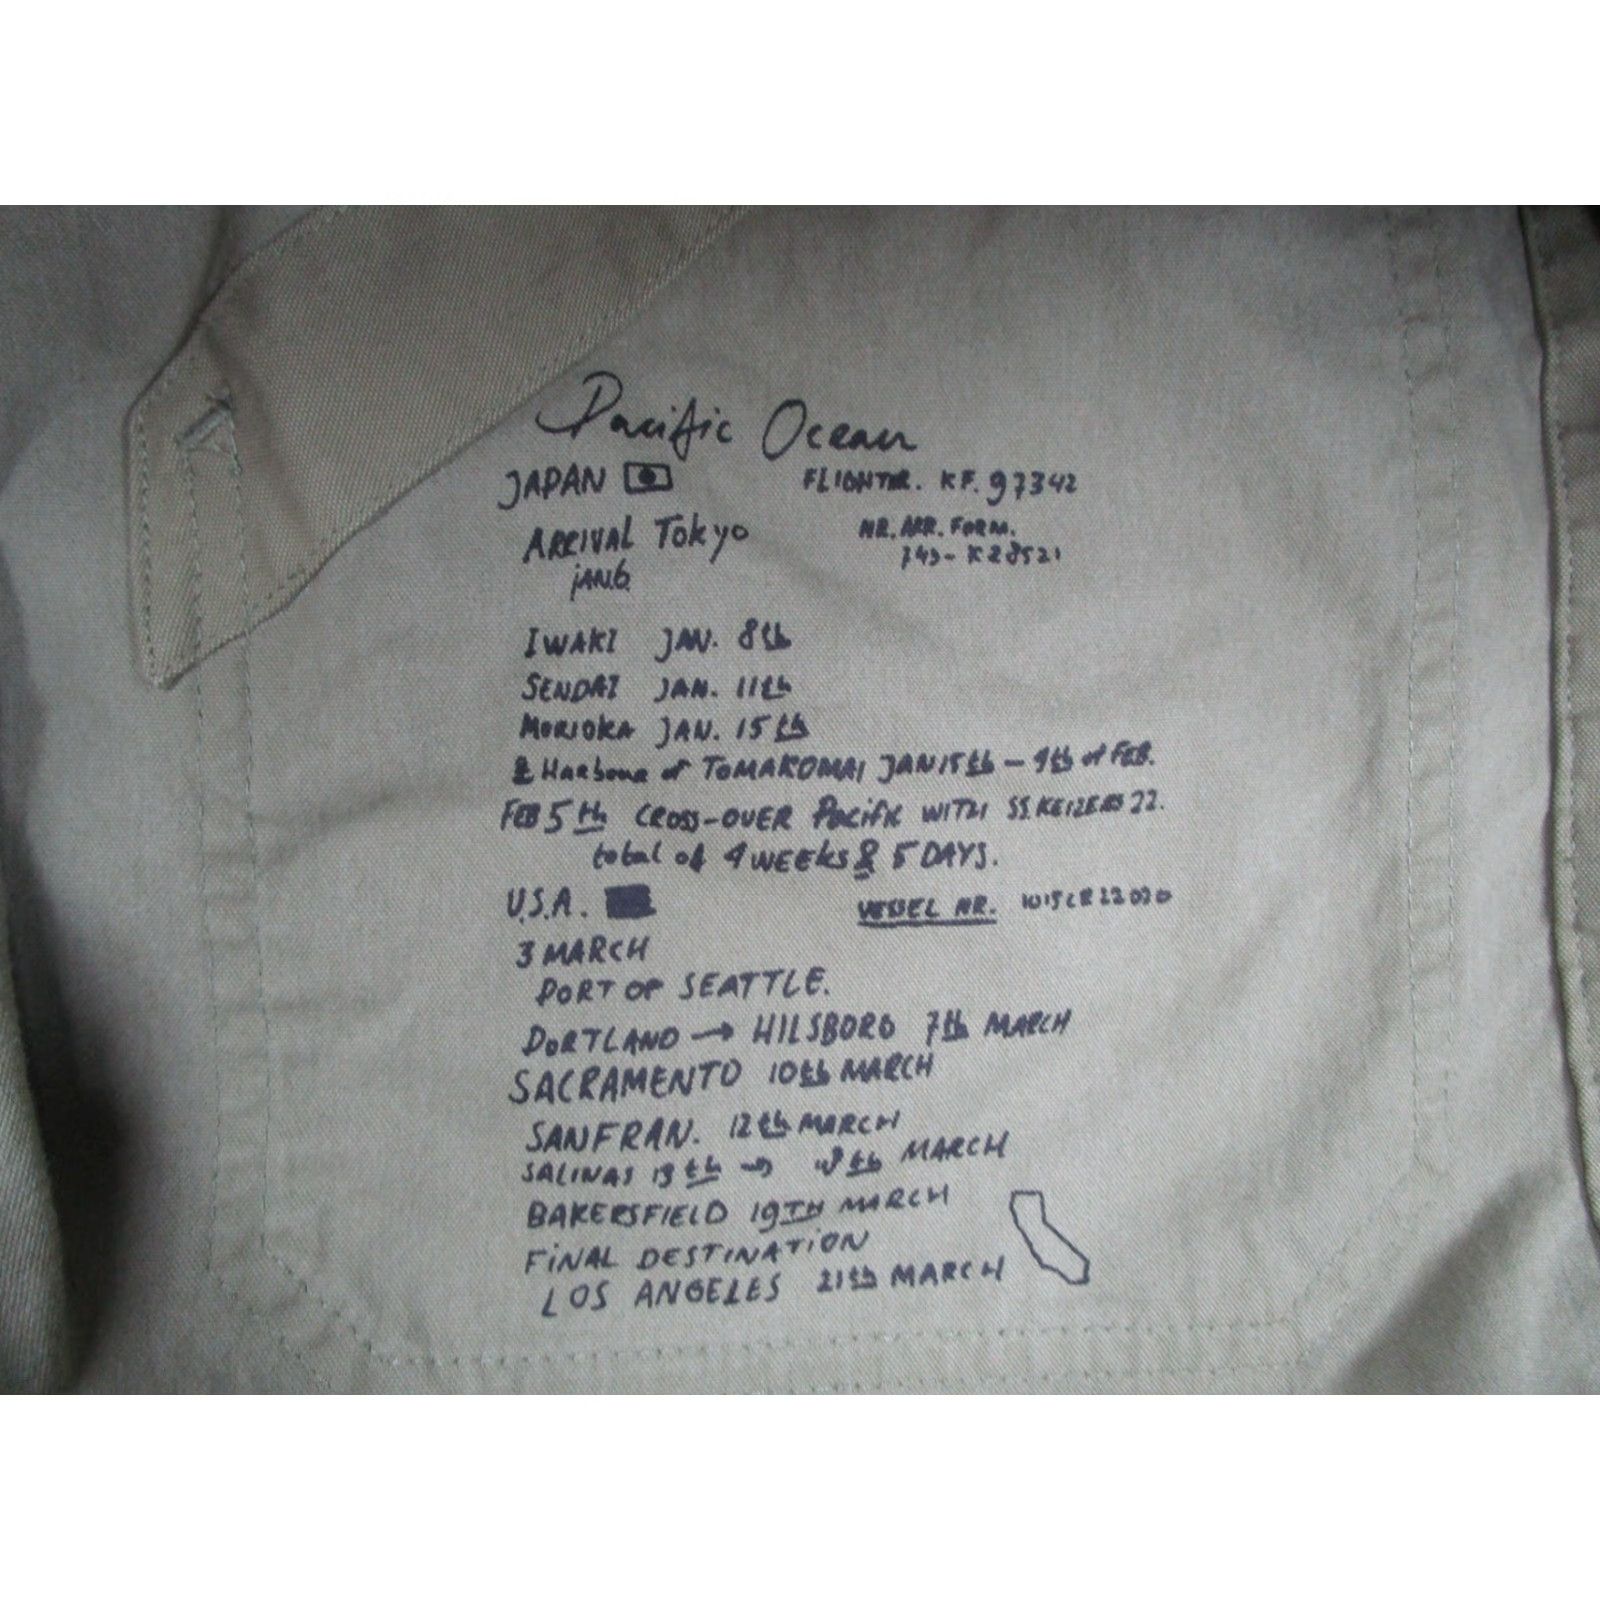 Pacific Ocean
JAPAN FLIGHTNR. KF. 97342
ARRIVAL Tokyo NR. ARR. FORM.
JAN.6. 743-K28521
IWAKI JAN. 8th
SENDAI JAN. 11th
MORIOKA JAN. 15th
& Harbour of TOMAKOMAI JAN 15th - 4th of FEB.
FEB 5th CROSS-OVER Pacific WITH SS. KEIZERS 22.
total of 4 WEEKS & 5 DAYS.
U.S.A. VESSEL NR.
3 MARCH
PORT OF SEATTLE.
PORTLAND → HILSBORO 7th MARCH
SACRAMENTO 10th MARCH
SANFRAN. 12th MARCH
SALINAS 13th → MARCH
BAKERSFIELD 19TH MARCH
FINAL DESTINATION
LOS ANGELES 21th MARCH